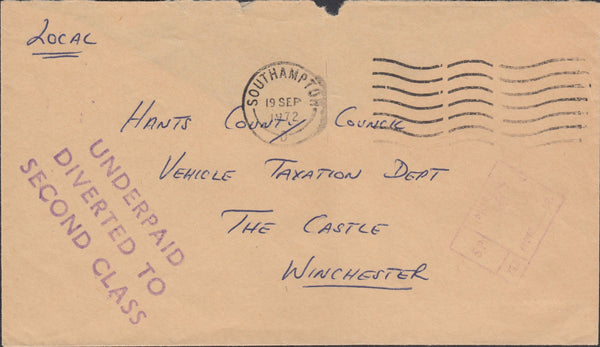 LOCAL
SOUTHAMPTON
19 SEP
1972
HANTS COUNTY COUNCIL
VEHICLE TAXATION DEPT
THE CASTLE
WINCHESTER
UNDERPAID
DIVERTED TO
SECOND CLASS